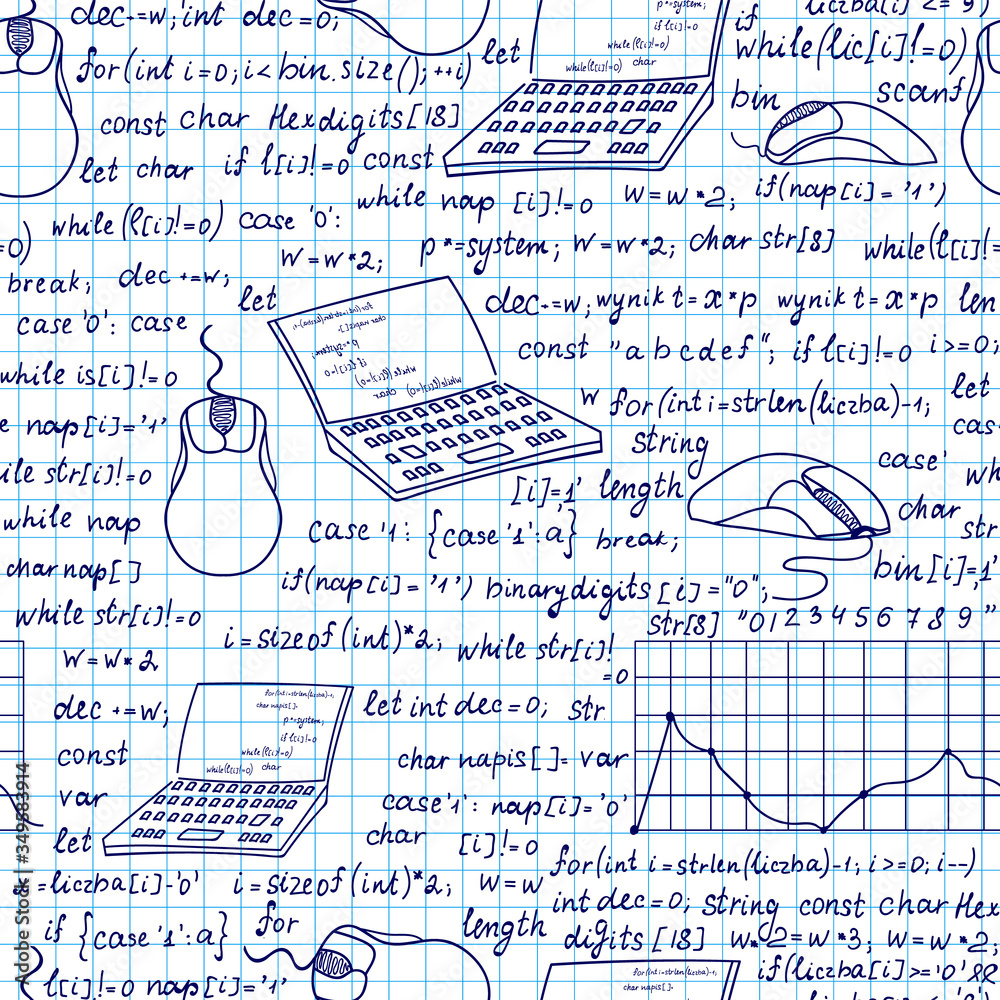 dec-=w; int dec=0;
let
p*=system;
if l[i]!=0
while(l[i]!=0)
while(l[i]!=0) char
if
liczba[i] <= 9)
while(lic[i]!=0)
for(int i=0; i< bin.size(); ++i)
bin
scanf
const char Hexdigits[18]
let char if l[i]!=0 const
while nap [i]!=0
w=w*2; if(nap[i]='1')
while(l[i]!=0) case '0':
=0)
w=w*2;
p*=system; w=w*2; char str[8]
while(l[i]!=
break; dec+=w;
let
dec-=w; wynik t=x*p wynik t=x*p len
case '0': case
const "abcdef"; if l[i]!=0 i>=0;
while is[i]!=0
w for(int i=strlen(liczba)-1;
let
e nap[i]='1'
string
cas
ile str[i]!=0
case'
wh
[i]=,1' length
while nap
case '1: {case '1':a} break;
char
str
char nap[]
if(nap[i]='1') binarydigits[i]="0";
bin[i]=,1'
while str[i]!=0
str[8] "0123456789"
i=sizeof(int)*2; while str[i]!
=0
w=w*2
for(int i=strlen(liczba)-1;
char napis[]-
p*=system;
if l[i]!=0
while(l[i]!=0)
while(l[i]!=0) char
dec+=w;
let int dec=0; str
const
char napis[]= var
var
case'1': nap[i]='0'
let
char [i]!=0
for(int i=strlen(liczba)-1; i>=0; i--)
=liczba[i]-'0' i=sizeof(int)*2; w=w
int dec=0; string const char Hex
if {case '1':a} for
length digits[18] w*2=w*3; w=w*2;
l[i]!=0 nap[i]='1'
for(int i=strlen(liczba)-1,
char napis[]-
if(liczba[i]>='0'&&
Adobe Stock | #349883914